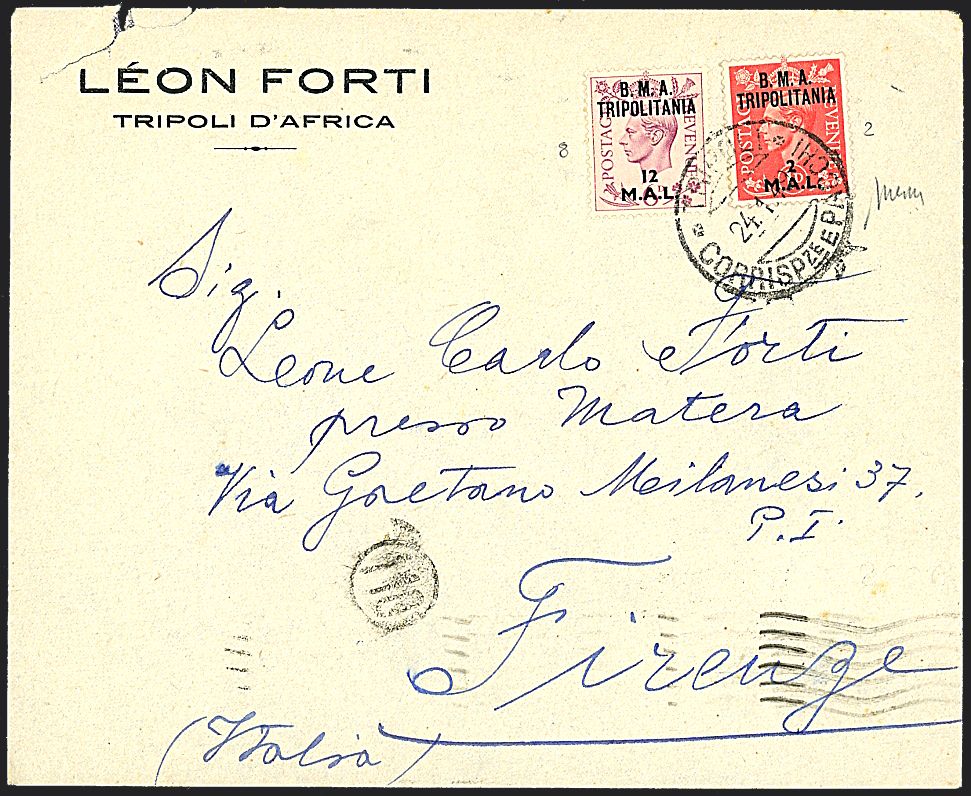 LÉON FORTI
TRIPOLI D'AFRICA
B. M. A.
TRIPOLITANIA
POSTAGE REVENUE
12
M.A.L.
B. M. A.
TRIPOLITANIA
POSTAGE REVENUE
2
M.A.L.
8
2
24.
CORRISPZE EPACCHI
Sig.
Leone Carlo Forti
presso Matera
Via Gaetano Milanesi 37.
P.I.
Firenze
(Italia)